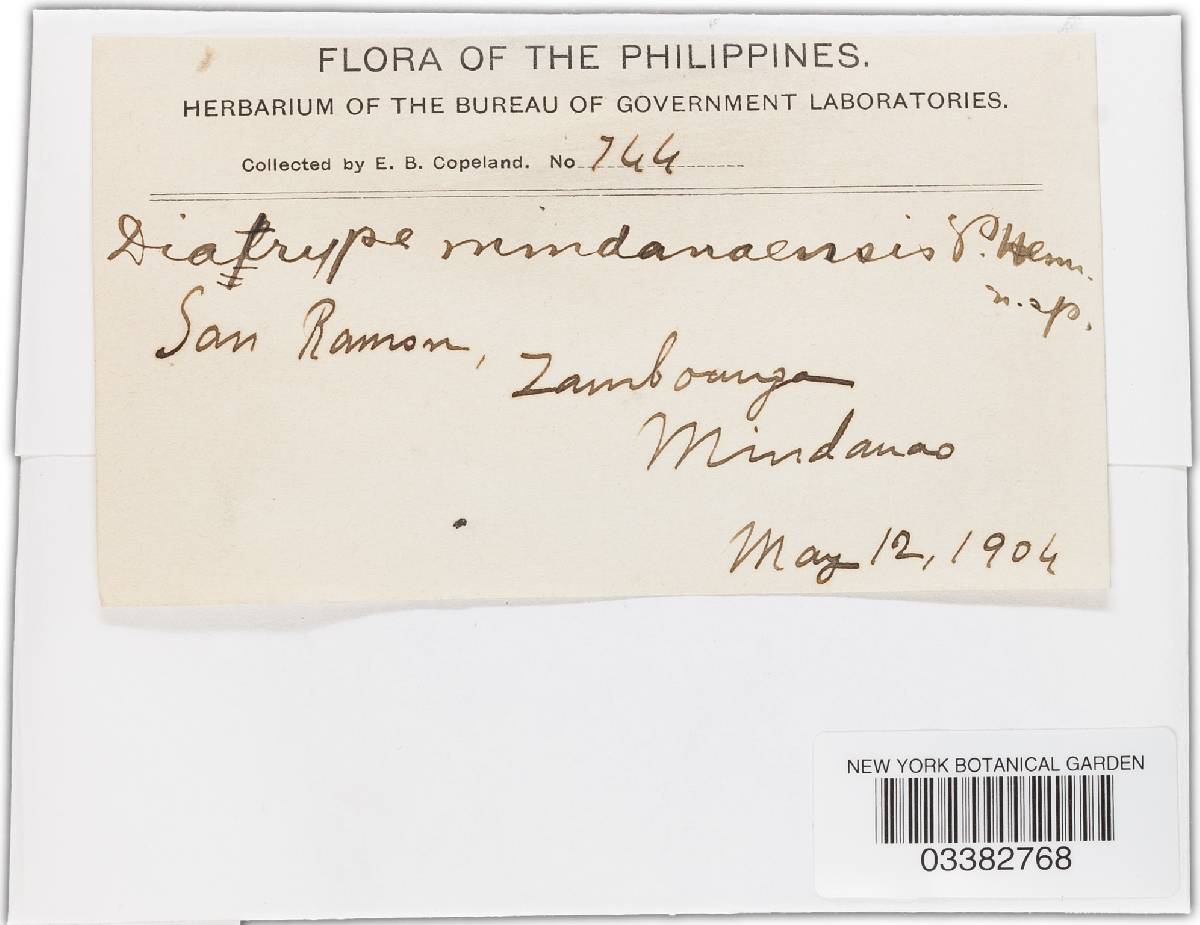 FLORA OF THE PHILIPPINES.
HERBARIUM OF THE BUREAU OF GOVERNMENT LABORATORIES.
Collected by E. B. Copeland. No 744
Diatrype mindanaensis P. Henn.
n. sp.
San Ramon, Zamboanga
Mindanao
May 12, 1904
NEW YORK BOTANICAL GARDEN
03382768